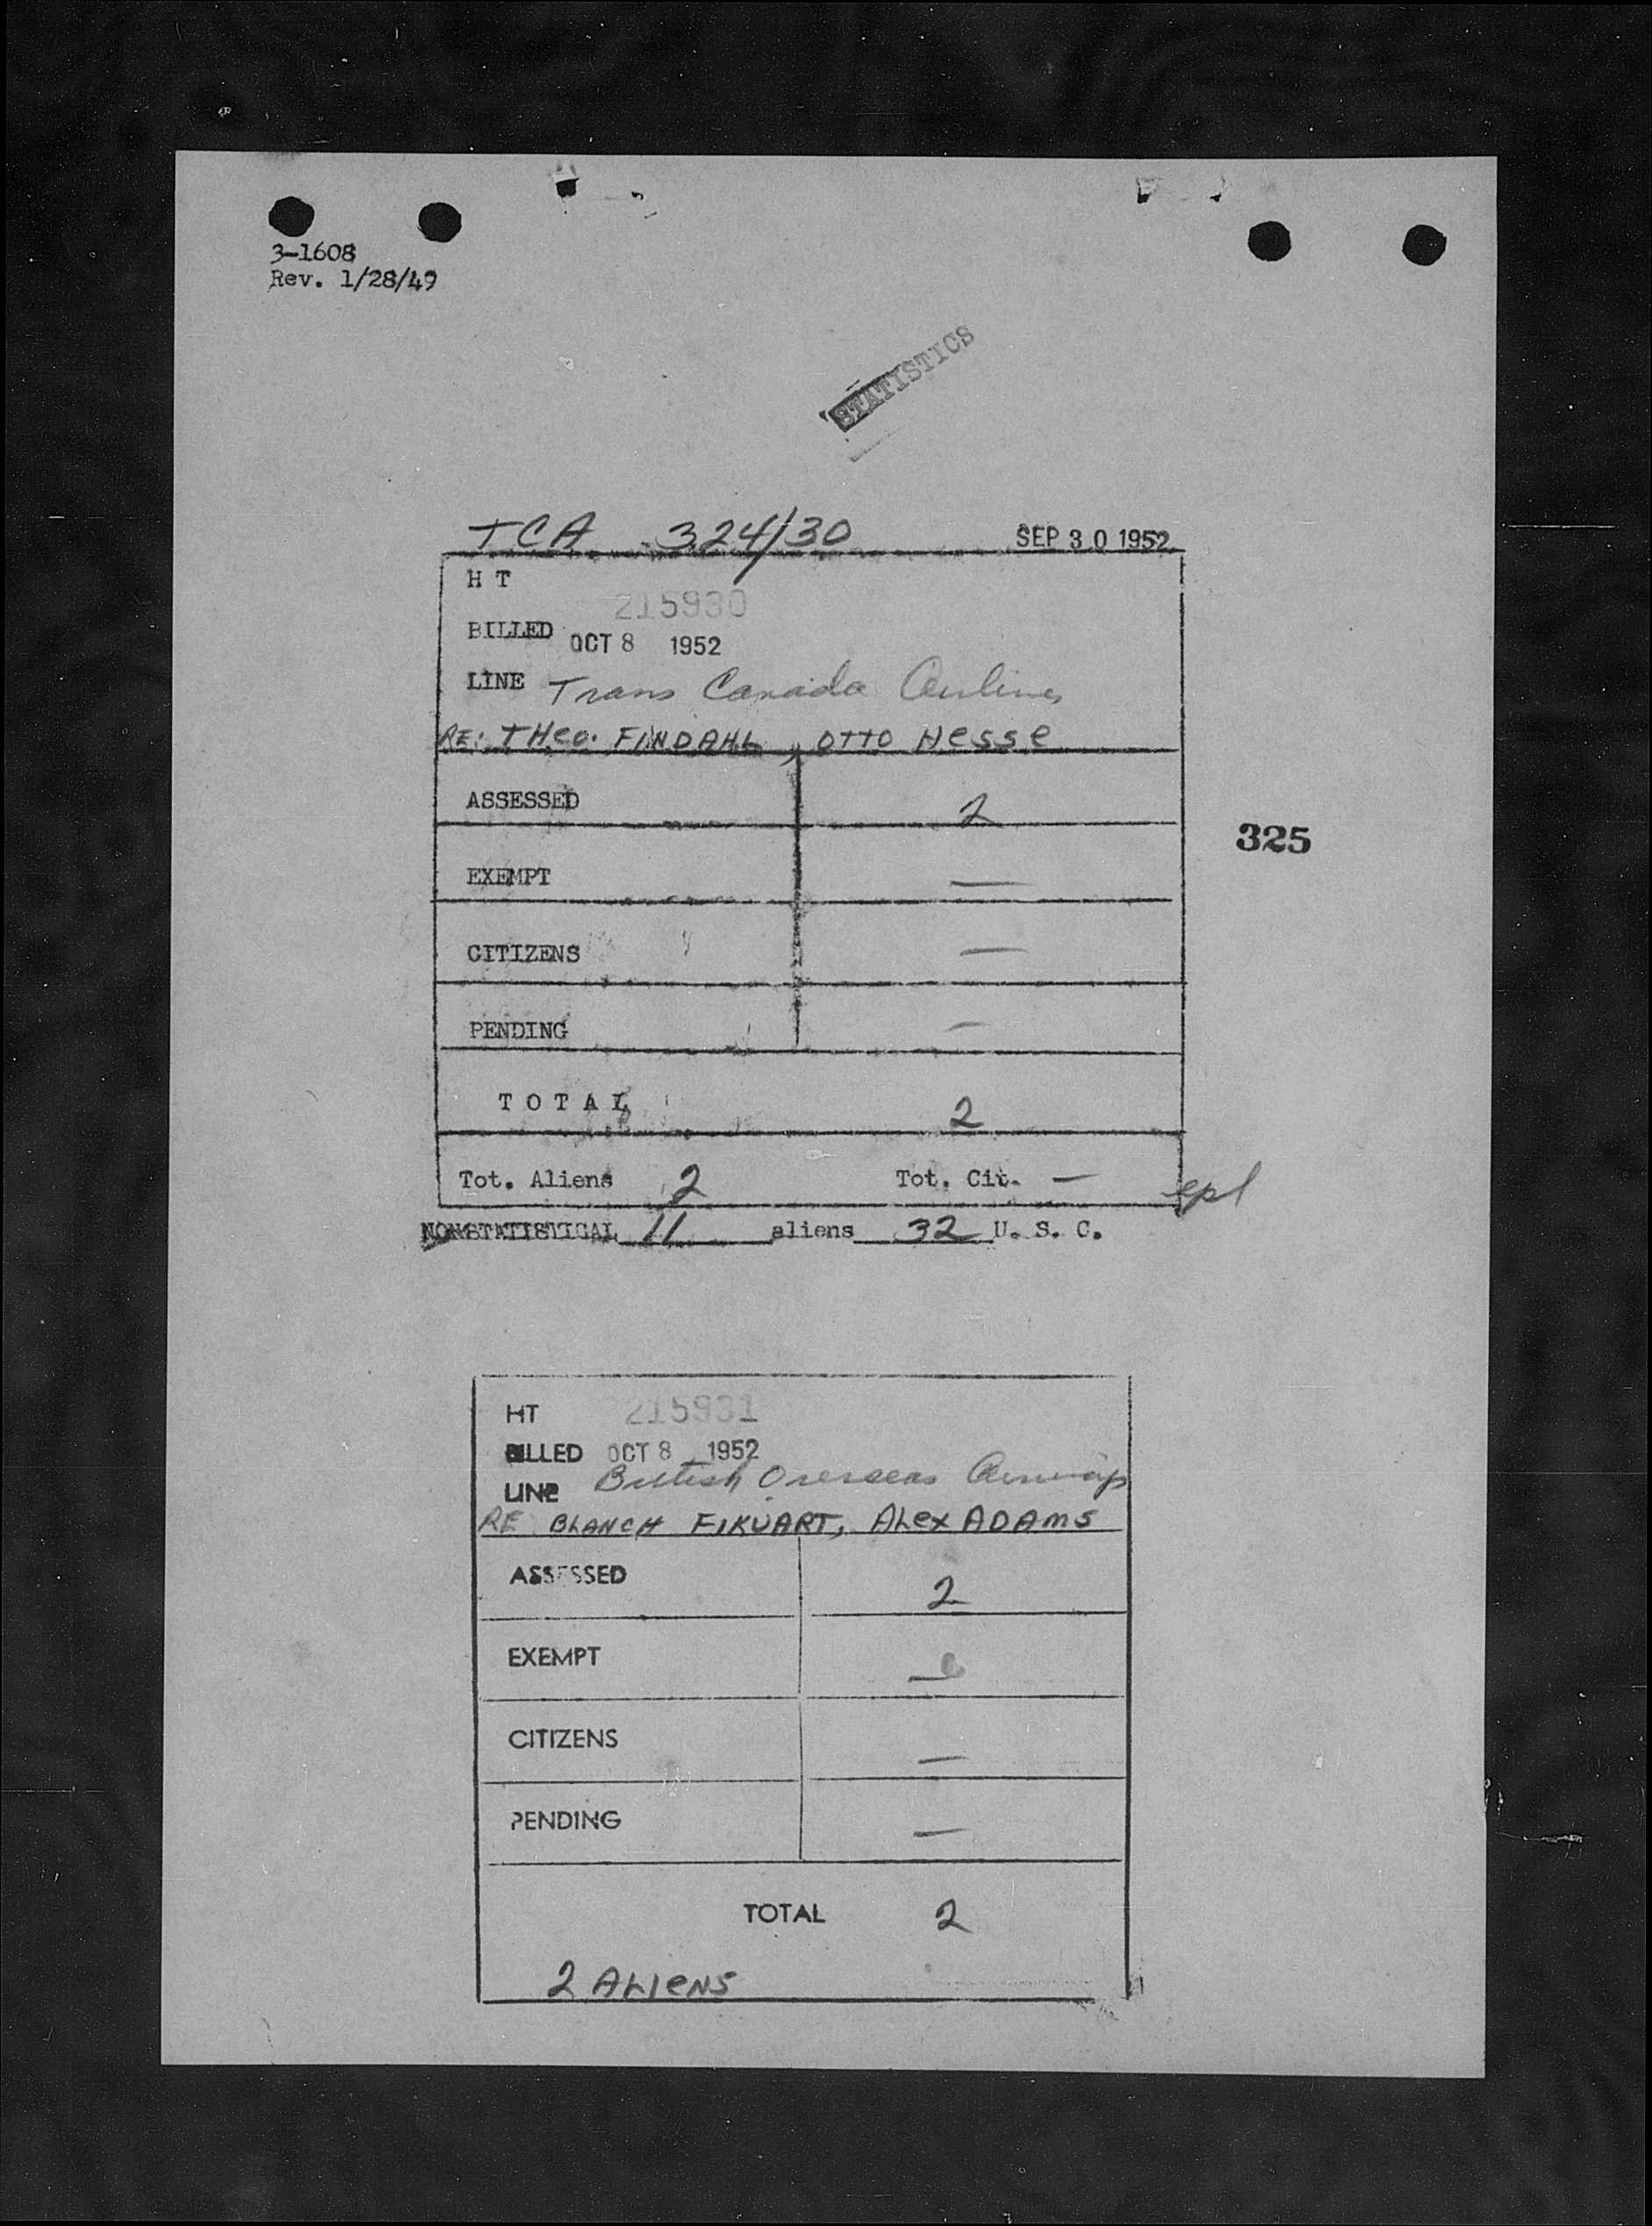 3-1608
Rev. 1/28/49
STATISTICS
TCA 324/30 SEP 30 1952
H T
215930
BILLED OCT 8 1952
LINE Trans Canada Airlines
RE: THEO. FINDAHL, OTTO HESSE
ASSESSED 2
325
EXEMPT —
CITIZENS —
PENDING —
T O T A L 2
Tot. Aliens 2 Tot. Cit. —
NONSTATISTICAL 11 aliens 32 U. S. C.
HT 215931
BILLED OCT 8 1952
LINE British Overseas Airways
RE BLANCH FIKUART, ALEX ADAMS
ASSESSED 2
EXEMPT —
CITIZENS —
PENDING —
TOTAL 2
2 ALIENS